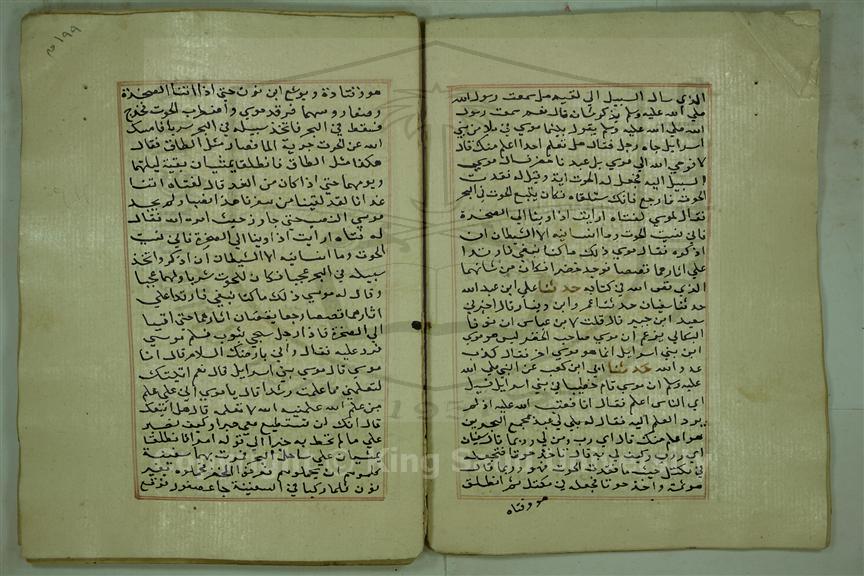 الذي سال السبيل الى لقيه هل سمعت رسول الله
صلى الله عليه وسلم يذكر شانه قال نعم سمعت رسول
الله صلى الله عليه وسلم يقول بينما موسى في ملا من بني
اسرايل جاه رجل فقال هل تعلم احدا اعلم منك قال
لا فاوحي الله الى موسى بل عبدنا خضر فسال موسى
السبيل اليه فجعل له الحوت اية وقيل له اذا فقدت
الحوت فارجع فانك ستلقاه فكان يتبع الحوت في البحر
فقال لموسى فتاه ارايت اذ اوينا الى الصخرة
فاني نسيت الحوت وما انسانيه الا الشيطان ان
اذكره فقال موسى ذلك ما كنا نبغي فارتدا
على اثارهما قصصا فوجدا خضرا فكان من شانهما
الذي قص الله في كتابه حدثنا علي ابن عبد الله
حدثنا سفيان حدثنا عمرو ابن دينار قال اخبرني
سعيد ابن جبير قال قلت لابن عباس ان نوفا
البكالي يزعم ان موسى صاحب الخضر ليس هو موسى
ابن بني اسرايل انما هو موسى اخر فقال كذب
عدو الله حدثنا ابي ابن كعب عن النبي صلى الله
عليه وسلم ان موسى قام خطيبا في بني اسرايل فسيل
اي الناس اعلم فقال انا فعتب الله عليه اذ لم
يرد العلم اليه فقال له بلى لي عبد بمجمع البحرين
هو اعلم منك قال اي رب ومن لي به وربما قال سفيان
اي رب وكيف لي به قال تاخذ حوتا فتجعله
في مكتل حيث ما فقدت الحوت فهو ثم وربما قال
فهو ثمه واخذ حوتا فجعله في مكتل ثم انطلق
هو وفتاه
١٩٩
هو وفتاه ويوشع ابن نون حتى اذا اتيا الصخرة
وضعا روسهما فرقد موسى واضطرب الحوت فخرج
فسقط في البحر فاتخذ سبيله في البحر سربا فامسك
الله عن الحوت جرية الما فصار مثل الطاق فقال
هكذا مثل الطاق فانطلقا يمشيان بقية ليلتهما
ويومهما حتى اذا كان من الغد قال لفتاه اتنا
غدانا لقد لقينا من سفرنا هذا نصبا ولم يجد
موسى النصب حتى جاوز حيث امره الله فقال
له فتاه ارايت اذ اوينا الى الصخرة فاني نسيت
الحوت وما انسانيه الا الشيطان ان اذكره واتخذ
سبيله في البحر عجبا فكان للحوت سربا ولهما عجبا
وقال له موسى ذلك ما كنا نبغي فارتدا على
اثارهما قصصا رجعا يقصان اثارهما حتى انتهيا
الى الصخرة فاذا رجل مسجى بثوب فسلم موسى
فرد عليه فقال واني بارضك السلام قال انا
موسى قال موسى بني اسرايل قال نعم اتيتك
لتعلمني مما علمت رشدا قال يا موسى اني على علم
من علم الله علمنيه الله لا تعلمه قال هل اتبعك
قال انك لن تستطيع معي صبرا وكيف تصبر
على ما لم تحط به خبرا الى قوله امرا فانطلقا
يمشيان على ساحل البحر فمرت بهما سفينة
كلموهم ان يحملوهم فعرفوا الخضر فحملوه بغير
نول فلما ركبا في السفينة جا عصفور فوقع